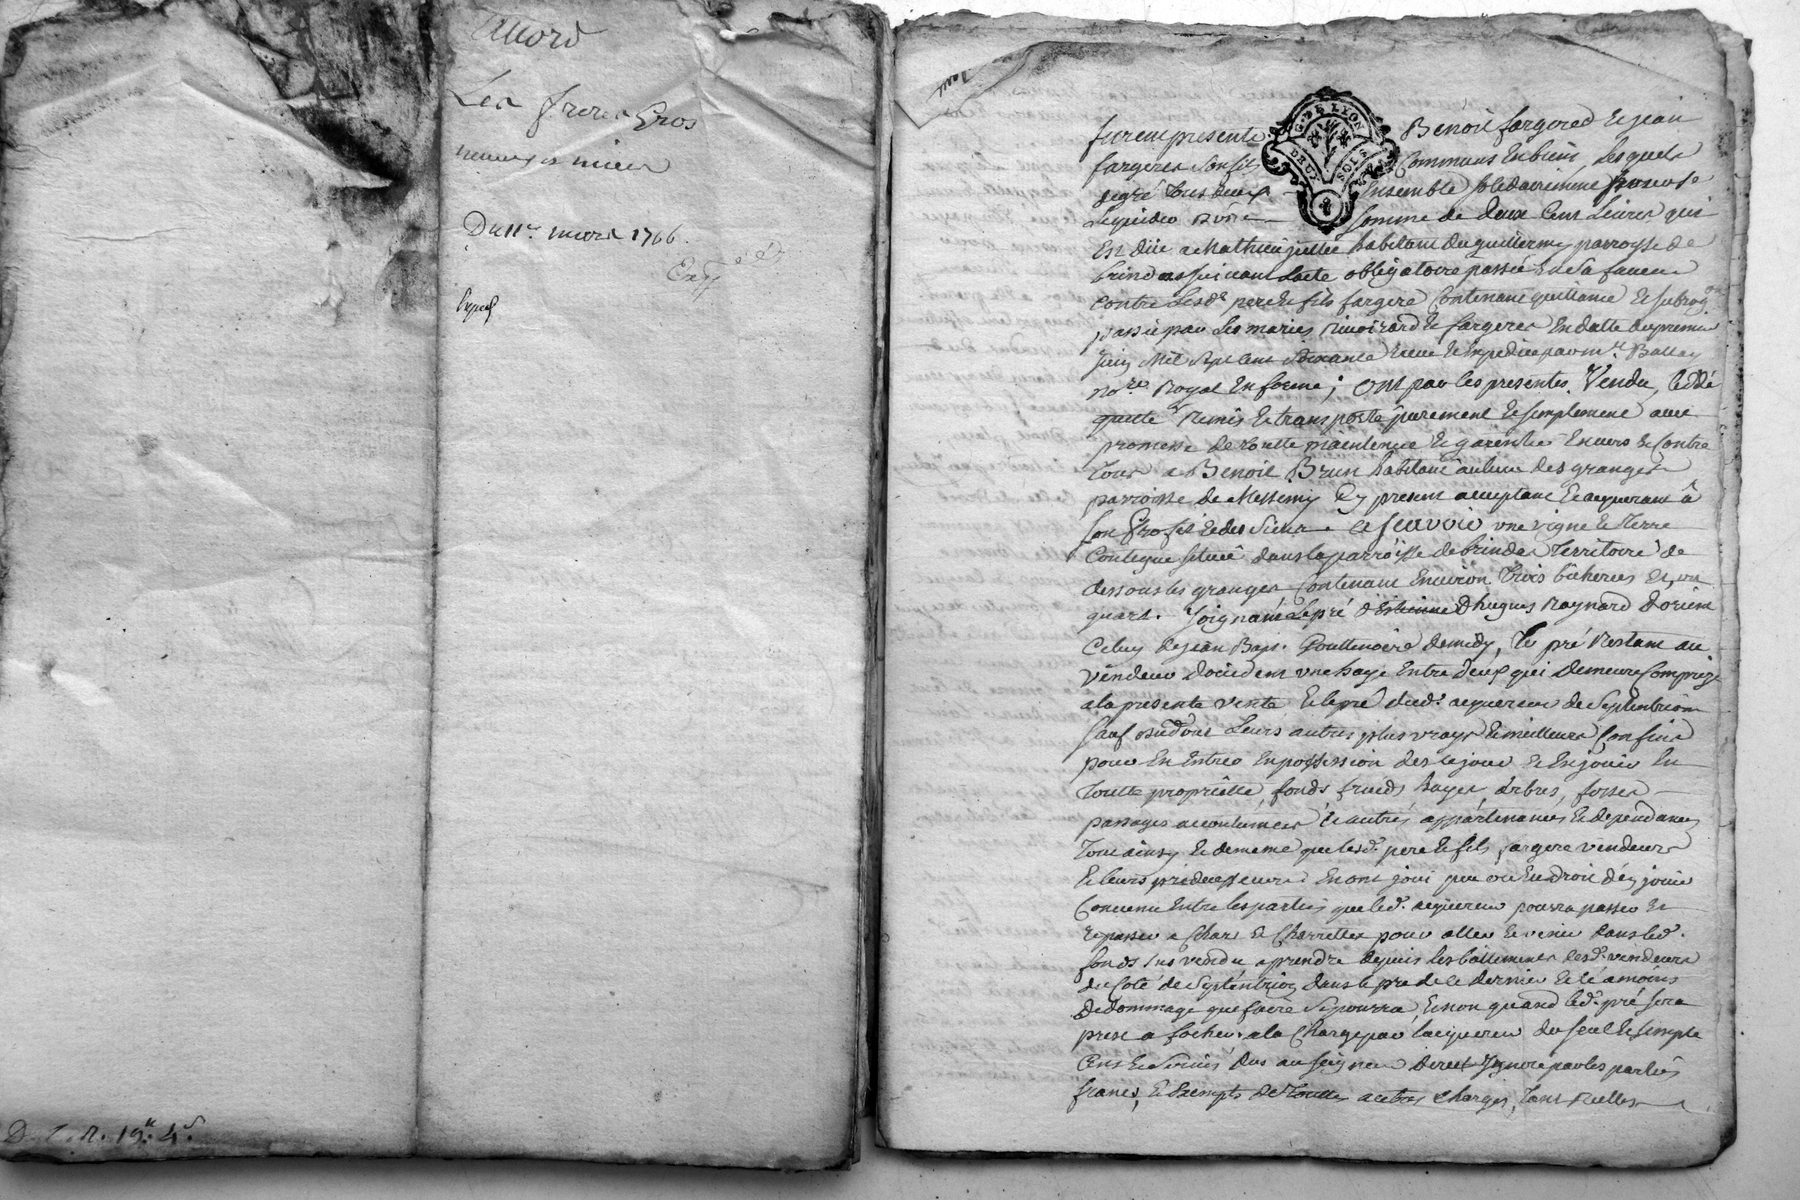 accord
Les freres Gros
neveux et nieces
Du 11e. mars 1766.
Exp
D. C. R. 19s. 4d.
G. DE LYON
DEUX SOLS
furent presents Benoit fargere et jean
fargere son fils Communs en biens, lesquels
de gré tous deux ensemble solidairement
somme de deux Cent Livres qui
Est düe a Mathieu habitant du parroysse de
brindas suivant Lacte obligatoire passé en sa faveur
contre Lesds. pere et fils fargere Contenant quittance et subrog.on
passé par Les mariés Rivoirard et fargere En datte du premier
juin Mil sept cent soixante Expedie par me. Ballay
nore. Royal En forme; Ont par les presentes Vendu, ceddé
quitté Remis et transporté purement et simplement avec
promesse de toutte maintenüe et garentie Envers et Contre
tous a Benoit Brun habitant au lieu des granges
parroisse de Messimy Cy present acceptant et acquerant à
son Profit et des siens. a scavoir une vigne et terre
Contigue scituée dans la parroisse de brindas territoire de
dessous les granges Contenant Environ trois bicherées et un
quart. joignant Le pré d'Estienne d'hugues Raynard d'orient
Celuy de jean Bapt. Gouttenoire de midy, Le pré Restant au
vendeur d'occident une haye Entre deux qui demeure Comprize
a la presente vente Et le pré dud. acquereur de septentrion
sauf ses autres plus vrays et meilleurs Confins
pour En Entrer En possession des ce jour et En jouir En
toutte proprieté, fonds fruids hayes, arbres, fosses
passages accoutumées et autres appartenances et dependances
tout ainsy et de meme que lesd. pere et fils fargere vendeurs
et leurs predecesseurs En ont joui peu ou En droit d'en jouir
Convenu Entre les parties que led. acquereur pourra passer et
repasser a Chars et Charrettes pour aller et venir dans led.
fonds sus vendu a prendre depuis les battiments desds. vendeurs
du coté de septentrion dans le pré de ce dernier et le a moins
de dommage que faire se pourra, et non quand led. pré sera
prest a faucher. a la Charge par lacquereur du seul et simple
Cens et servis dus au seigneur direct Ignoré par les parties
francs, et Exempts de touttes autres charges, tant reelles